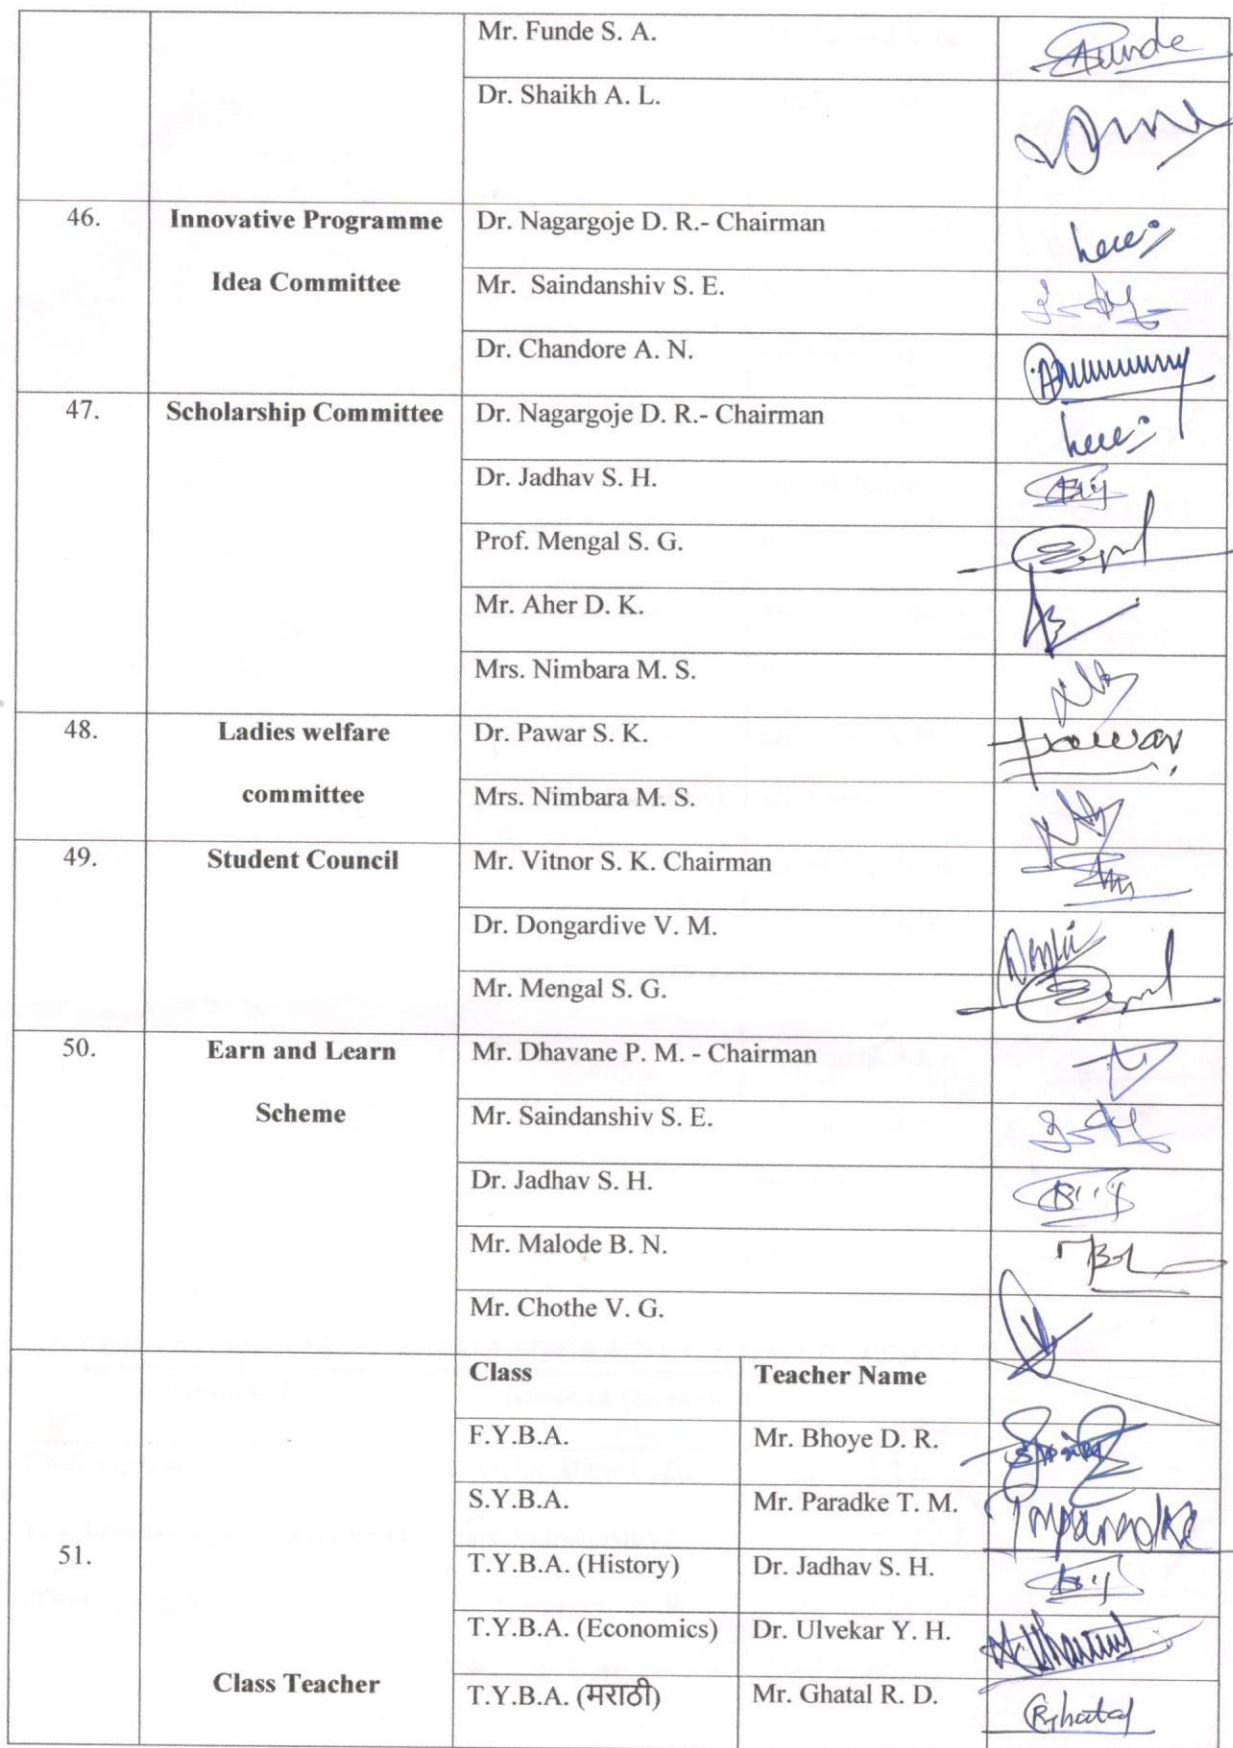 Mr. Funde S. A.
Dr. Shaikh A. L.
46. Innovative Programme Dr. Nagargoje D. R.- Chairman
Idea Committee Mr. Saindanshiv S. E.
Dr. Chandore A. N.
47. Scholarship Committee Dr. Nagargoje D. R.- Chairman
Dr. Jadhav S. H.
Prof. Mengal S. G.
Mr. Aher D. K.
Mrs. Nimbara M. S.
48. Ladies welfare Dr. Pawar S. K.
committee Mrs. Nimbara M. S.
49. Student Council Mr. Vitnor S. K. Chairman
Dr. Dongardive V. M.
Mr. Mengal S. G.
50. Earn and Learn Mr. Dhavane P. M. - Chairman
Scheme Mr. Saindanshiv S. E.
Dr. Jadhav S. H.
Mr. Malode B. N.
Mr. Chothe V. G.
Class Teacher Name
F.Y.B.A. Mr. Bhoye D. R.
S.Y.B.A. Mr. Paradke T. M.
51. T.Y.B.A. (History) Dr. Jadhav S. H.
T.Y.B.A. (Economics) Dr. Ulvekar Y. H.
Class Teacher T.Y.B.A. (मराठी) Mr. Ghatal R. D.